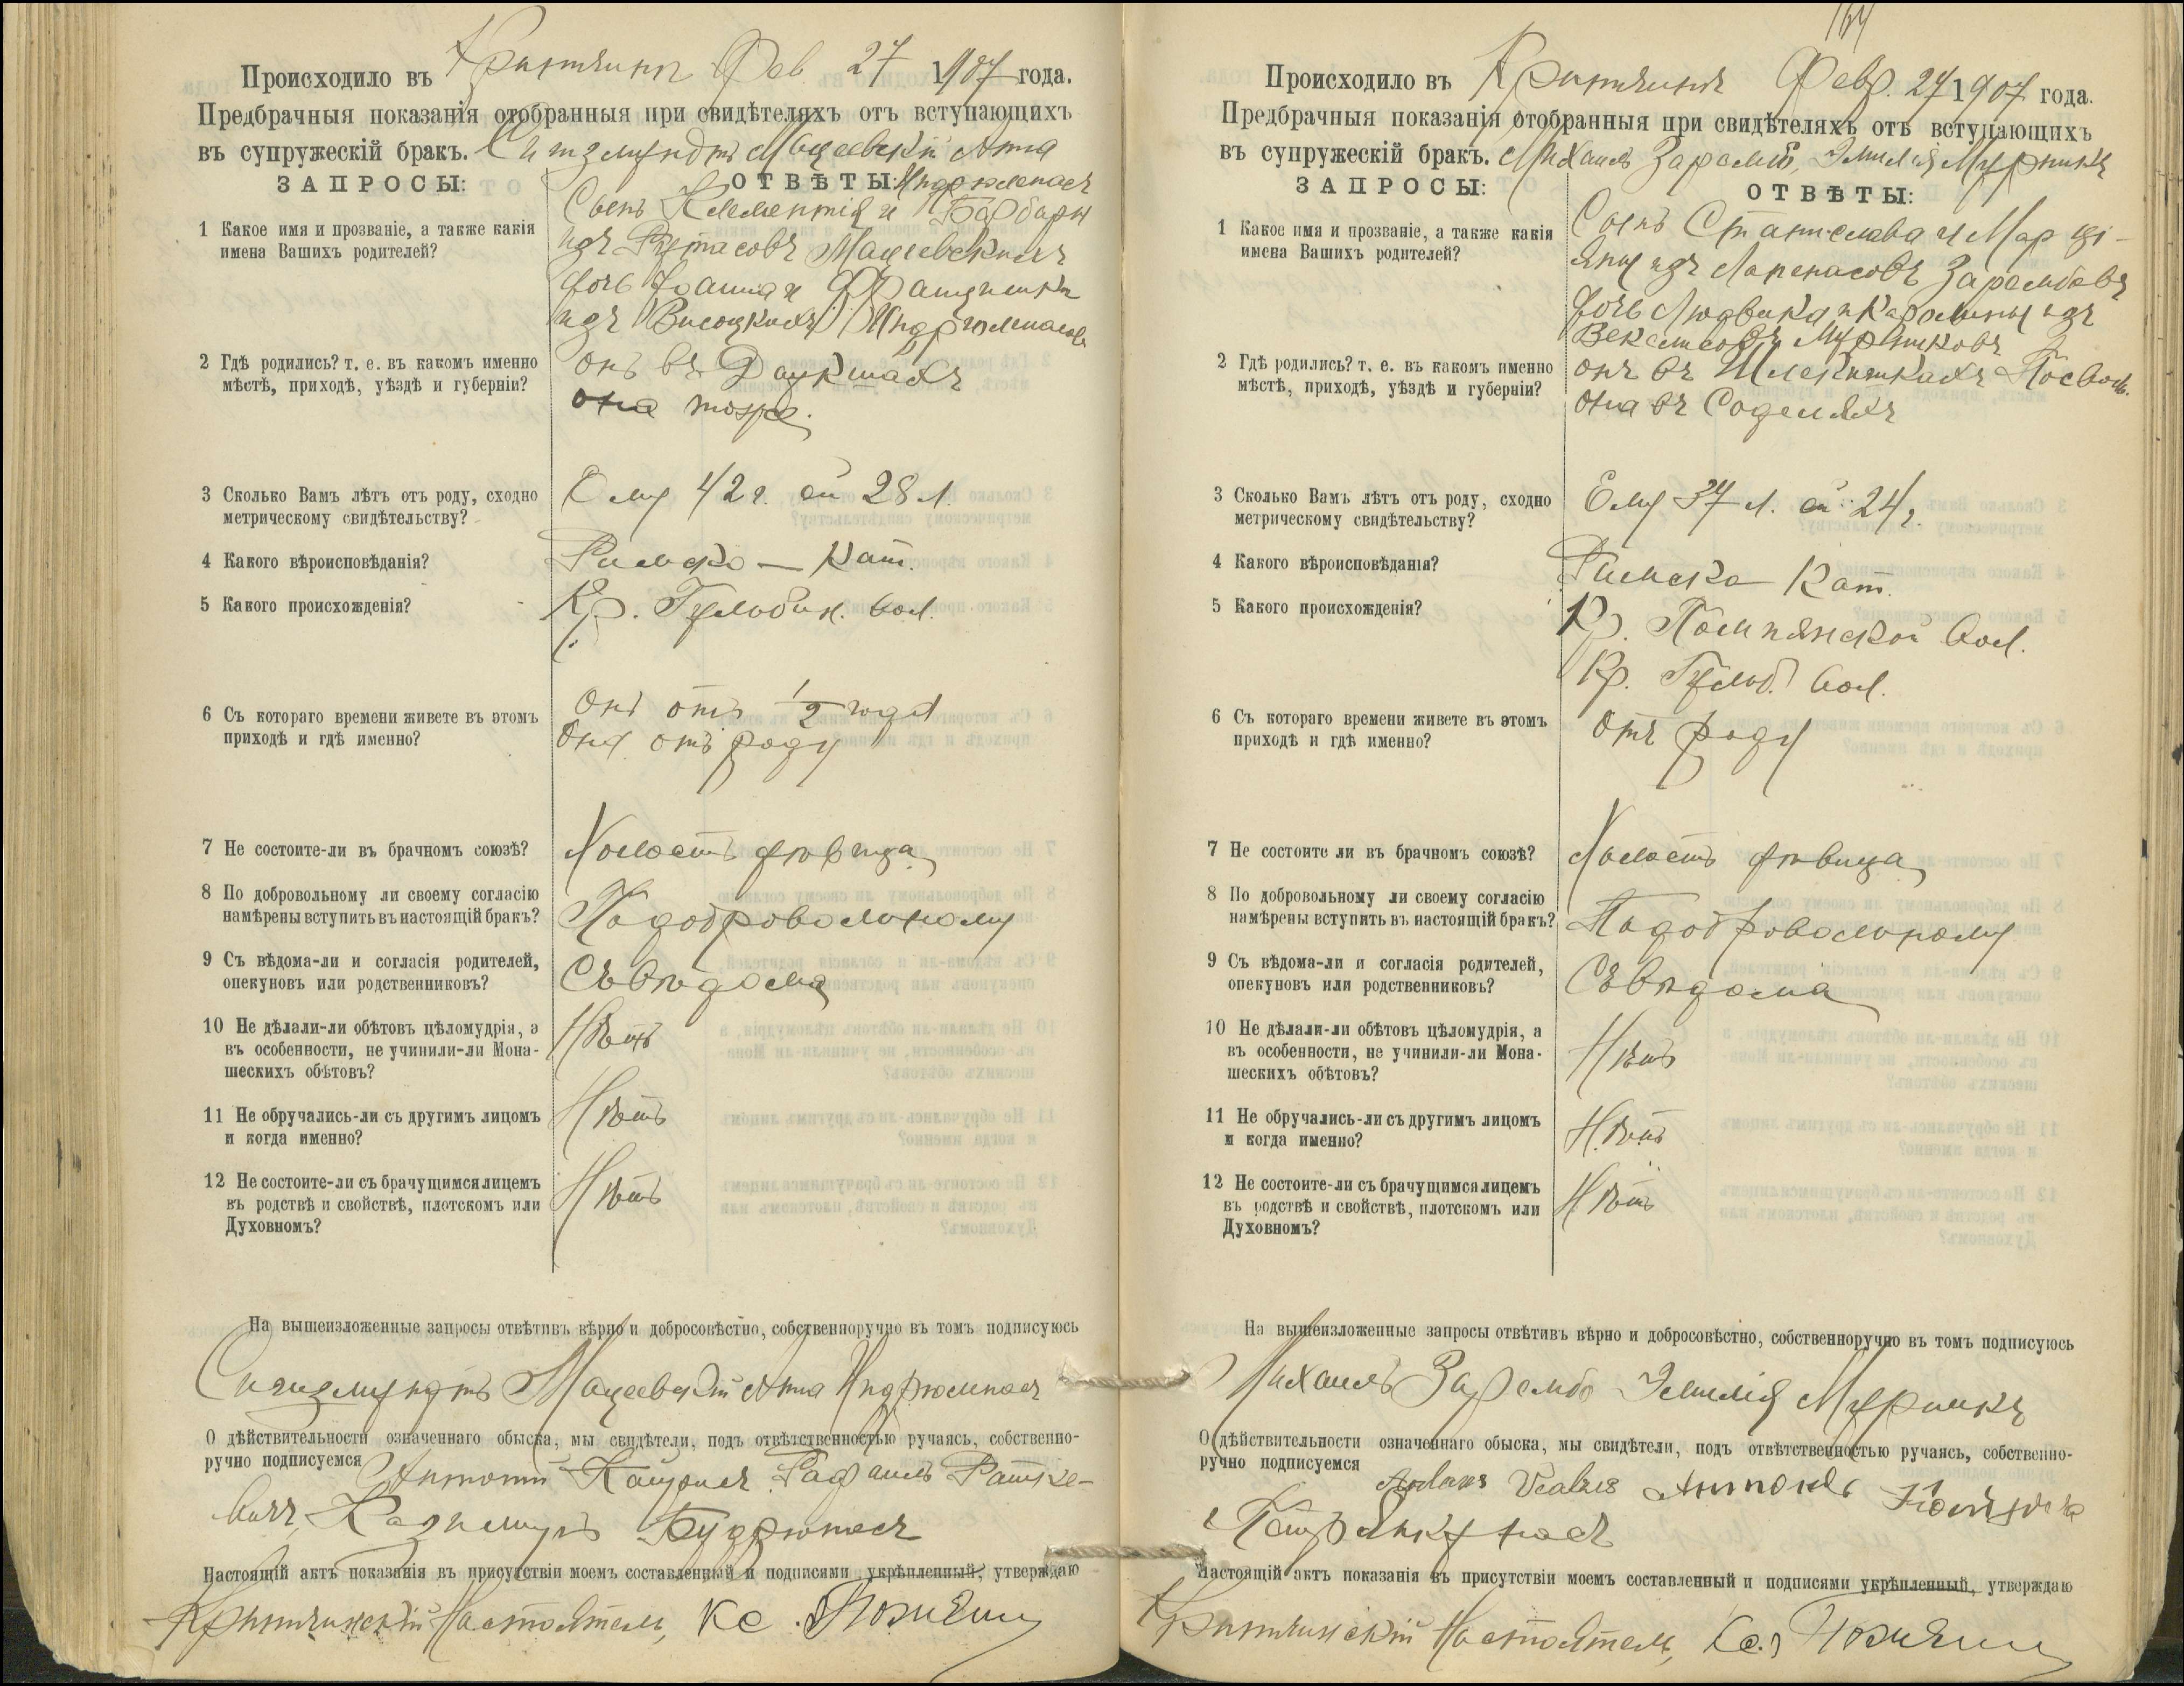 Происходило въ Критчинѣ Фев. 27 1907 года.
Предбрачныя показанія отобранныя при свидѣтеляхъ отъ вступающихъ
въ супружескій бракъ. Сигизмундъ Мацеевскій Анна
ЗАПРОСЫ: ОТВѢТЫ:
1 Какое имя и прозваніе, а также какія
имена Вашихъ родителей?
Сынъ Клементія и Барбары
изъ Мацеевскихъ
дочь Іоанна и Францишки
изъ Высоцкихъ
2 Гдѣ родились? т. е. въ какомъ именно
мѣстѣ, приходѣ, уѣздѣ и губерніи?
онъ въ Даукшахъ
она тоже.
3 Сколько Вамъ лѣтъ отъ роду, сходно
метрическому свидѣтельству?
Ему 42 г. ей 28 л.
4 Какого вѣроисповѣданія?
Римско — Кат.
5 Какого происхожденія?
Кр. Гульбин. вол.
6 Съ котораго времени живете въ этомъ
приходѣ и гдѣ именно?
Онъ отъ 1/2 года
Она отъ роду
7 Не состоите-ли въ брачномъ союзѣ?
Холостъ дѣвица
8 По добровольному ли своему согласію
намѣрены вступить въ настоящій бракъ?
По добровольному
9 Съ вѣдома-ли и согласія родителей,
опекуновъ или родственниковъ?
Съ вѣдома
10 Не дѣлали-ли обѣтовъ цѣломудрія, а
въ особенности, не учинили-ли Мона-
шескихъ обѣтовъ?
Нѣтъ
11 Не обручались-ли съ другимъ лицомъ
и когда именно?
Нѣтъ
12 Не состоите-ли съ брачущимся лицемъ
въ родствѣ и свойствѣ, плотскомъ или
Духовномъ?
Нѣтъ
На вышеизложенные запросы отвѣтивъ вѣрно и добросовѣстно, собственноручно въ томъ подписуюсь
Сигизмундъ Мацеевскій Анна
О дѣйствительности означеннаго обыска, мы свидѣтели, подъ отвѣтственностью ручаясь, собственно-
ручно подписуемся Антоній Рафаилъ
Казимиръ
Настоящій актъ показанія въ присутствіи моемъ составленный и подписями укрѣпленный, утверждаю
Настоятель, Кс.
Происходило въ Критчинѣ Февр. 27 1907 года.
Предбрачныя показанія отобранныя при свидѣтеляхъ отъ вступающихъ
въ супружескій бракъ. Михаилъ Зарембо, Эмилія
ЗАПРОСЫ: ОТВѢТЫ:
1 Какое имя и прозваніе, а также какія
имена Вашихъ родителей?
Сынъ Станислава и Марці-
яны изъ Зарембовъ
дочь Людвика и Каролины изъ
2 Гдѣ родились? т. е. въ какомъ именно
мѣстѣ, приходѣ, уѣздѣ и губерніи?
онъ въ
она въ
3 Сколько Вамъ лѣтъ отъ роду, сходно
метрическому свидѣтельству?
Ему 37 л. ей 24 г.
4 Какого вѣроисповѣданія?
Римско Кат.
5 Какого происхожденія?
Кр. Помпянской вол.
Кр. Гульб. вол.
6 Съ котораго времени живете въ этомъ
приходѣ и гдѣ именно?
Отъ роду
7 Не состоите ли въ брачномъ союзѣ?
Холостъ дѣвица
8 По добровольному ли своему согласію
намѣрены вступить въ настоящій бракъ?
По добровольному
9 Съ вѣдома-ли и согласія родителей,
опекуновъ или родственниковъ?
Съ вѣдома
10 Не дѣлали-ли обѣтовъ цѣломудрія, а
въ особенности, не учинили-ли Мона-
шескихъ обѣтовъ?
Нѣтъ
11 Не обручались-ли съ другимъ лицомъ
и когда именно?
Нѣтъ
12 Не состоите-ли съ брачущимся лицемъ
въ родствѣ и свойствѣ, плотскомъ или
Духовномъ?
Нѣтъ
На вышеизложенные запросы отвѣтивъ вѣрно и добросовѣстно, собственноручно въ томъ подписуюсь
Михаилъ Зарембо Эмилія
О дѣйствительности означеннаго обыска, мы свидѣтели, подъ отвѣтственностью ручаясь, собственно-
ручно подписуемся
Настоящій актъ показанія въ присутствіи моемъ составленный и подписями укрѣпленный, утверждаю
Настоятель, Кс.